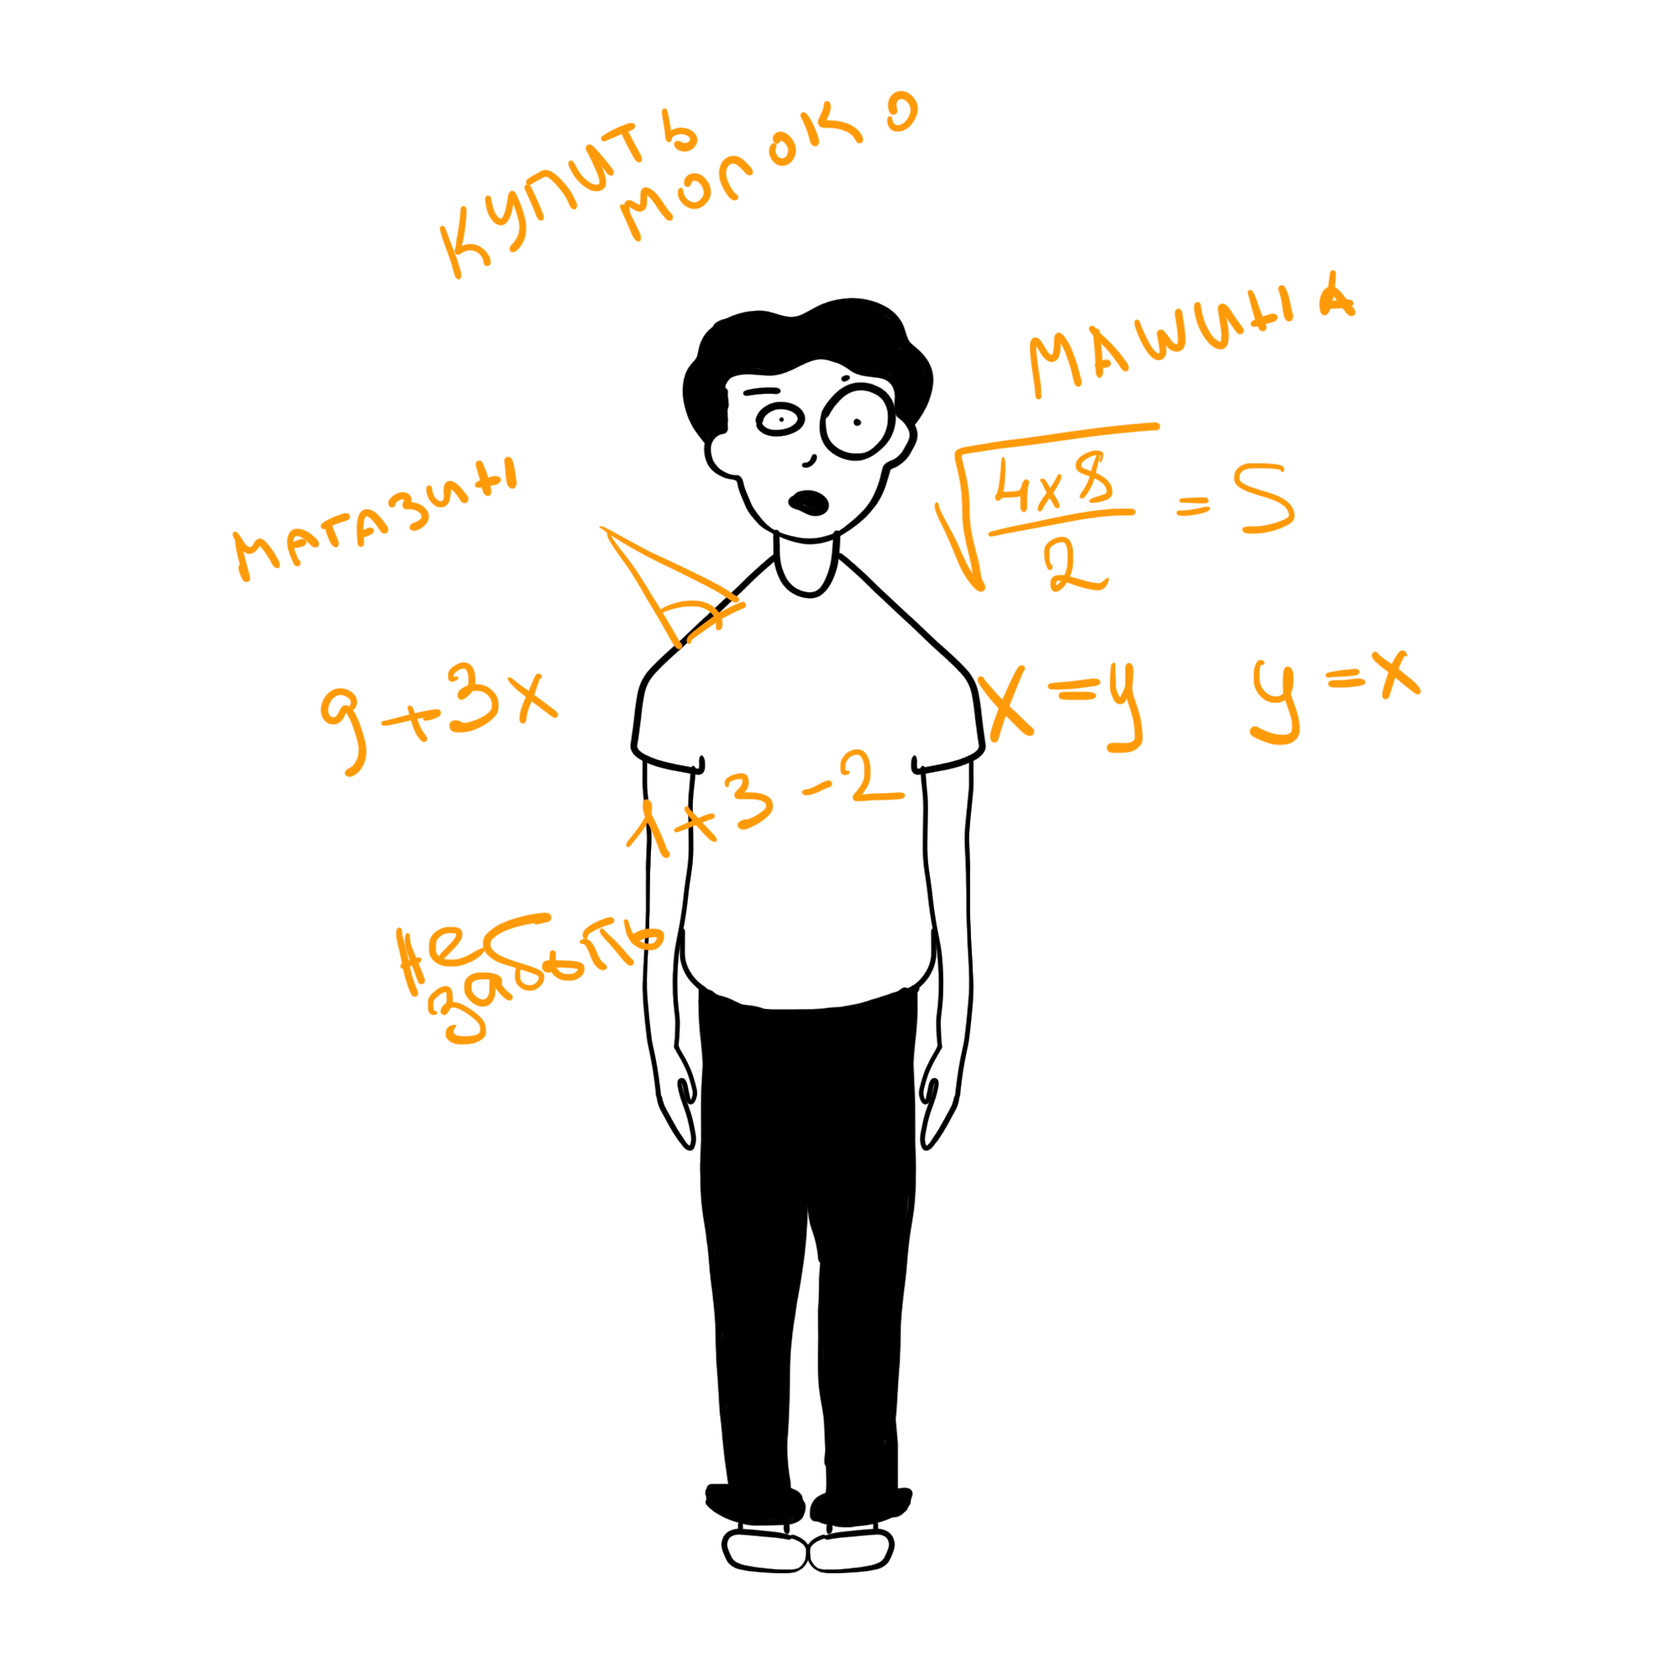 КУПИТЬ
МОЛОКО
МАШИНА
МАГАЗИН
√((4x8)/2) = S
9+3x
x=y
y=x
1x3-2
Не
забыть